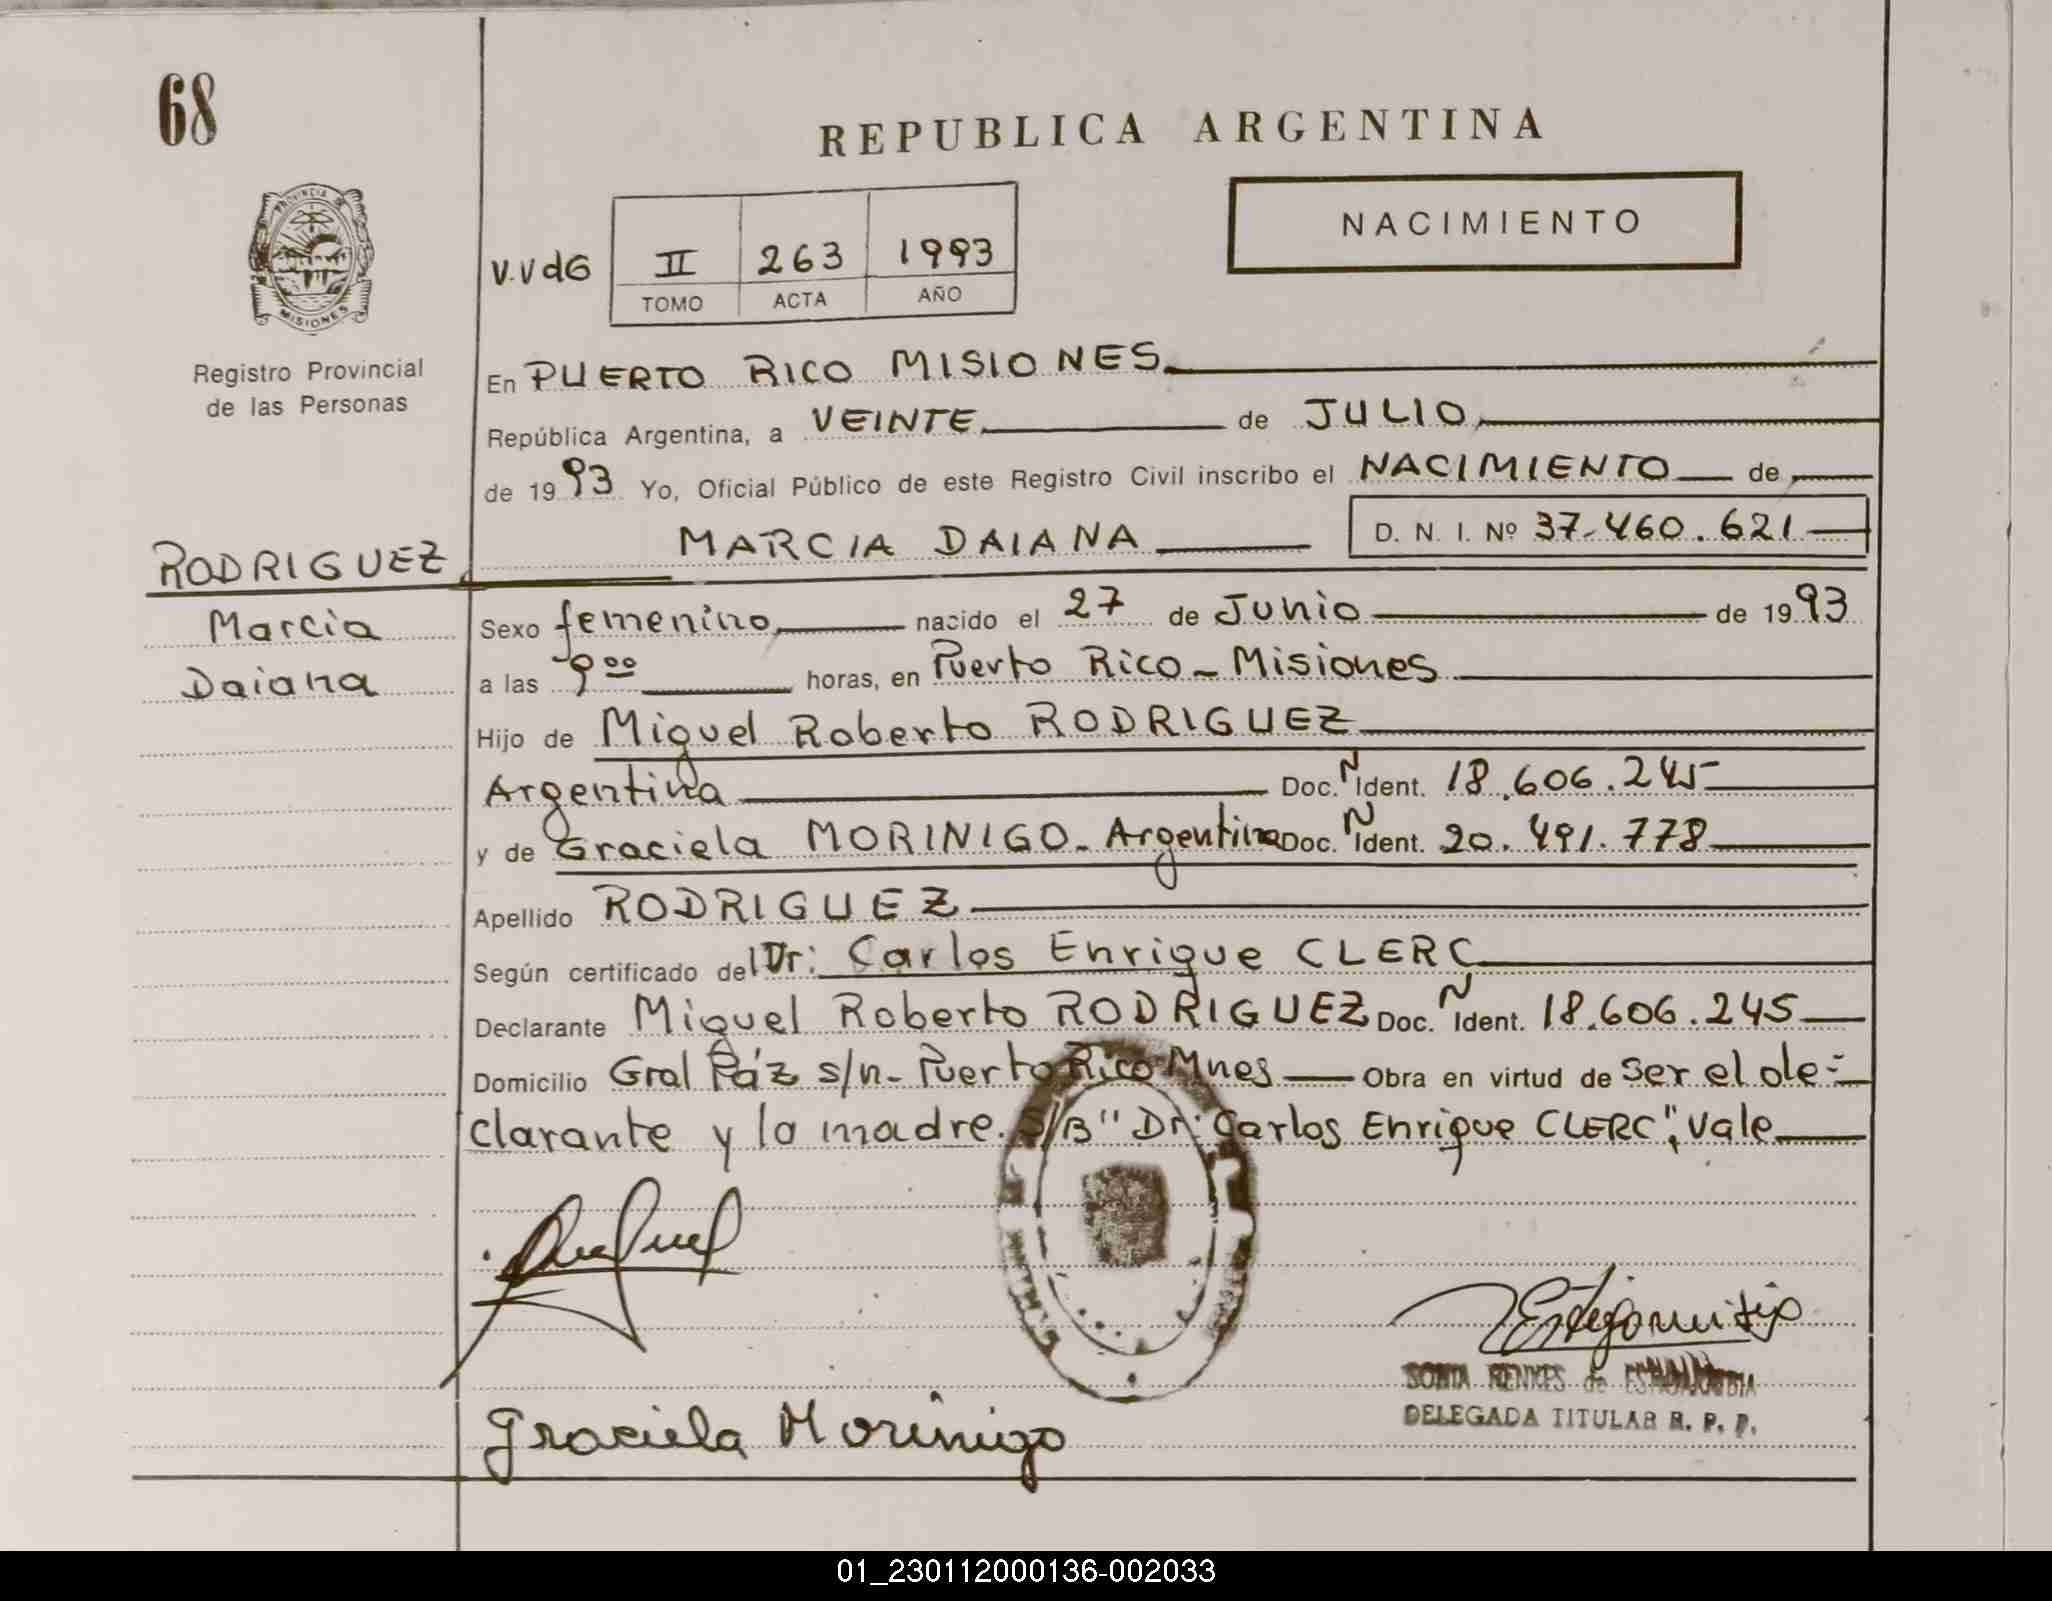 68
REPUBLICA ARGENTINA
PROVINCIA DE
MISIONES
Registro Provincial
de las Personas
V.VdG
II 263 1993
TOMO ACTA AÑO
NACIMIENTO
En PUERTO RICO MISIONES
República Argentina, a VEINTE de JULIO
de 1993 Yo, Oficial Público de este Registro Civil inscribo el NACIMIENTO de
RODRIGUEZ
Marcia
Daiana
MARCIA DAIANA D. N. I. Nº 37.460.621
Sexo femenino nacido el 27 de Junio de 1993
a las 9 00 horas, en Puerto Rico - Misiones
Hijo de Miguel Roberto RODRIGUEZ
Argentina Doc. N Ident. 18.606.245
y de Graciela MORINIGO - Argentina Doc. N Ident. 20.491.778
Apellido RODRIGUEZ
Según certificado del Dr: Carlos Enrique CLERC
Declarante Miguel Roberto RODRIGUEZ Doc. N Ident. 18.606.245
Domicilio Gral Páz s/n - Puerto Rico Mnes Obra en virtud de ser el de=
clarante y la madre. S/B "Dr: Carlos Enrique CLERC", Vale
Graciela Morinigo
DELEGADA TITULAR R. P. P.
01_230112000136-002033